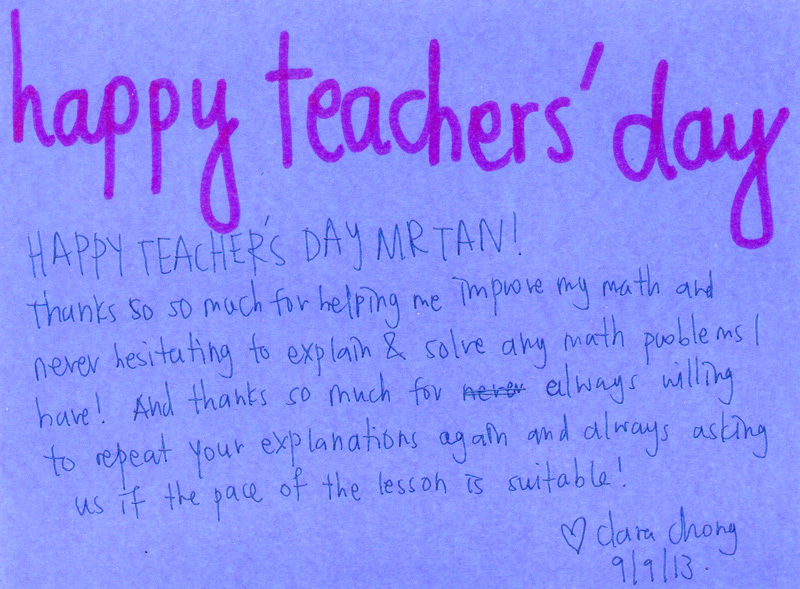 happy teachers' day
HAPPY TEACHER'S DAY MR TAN!
Thanks so so much for helping me improve my math and
never hesitating to explain & solve any math problems I
have! And thanks so much for never always willing
to repeat your explanations again and always asking
us if the pace of the lesson is suitable!
♡ Clara Chong
9/9/13.